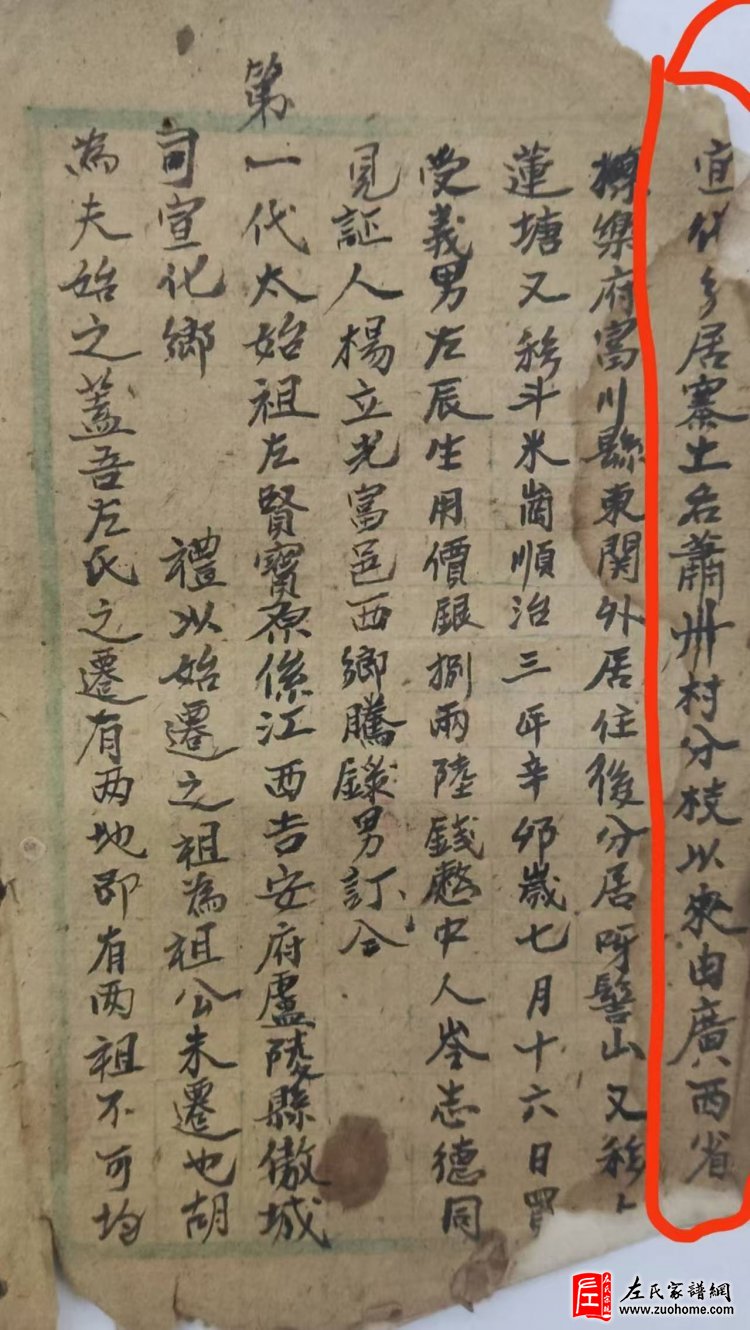 宣化乡居寨土名蕭卅村分枝以來由廣西省
樂府富川縣東関外居住後分居呀髻山又移
蓮塘又移斗米崗順治三年辛卯歲七月十六日買
受義男左辰生用價銀捌兩陸錢憑中人岑志德同
見証人楊立光富邑西鄉騰錄男訂仝
第一代太始祖左賢寶原係江西吉安府盧陵縣儌城
司宣化鄉 禮以始遷之祖為祖公未遷也胡
為夫始之蓋吾左氏之遷有两地即有两祖不可均
左氏家譜網
www.zuohome.com